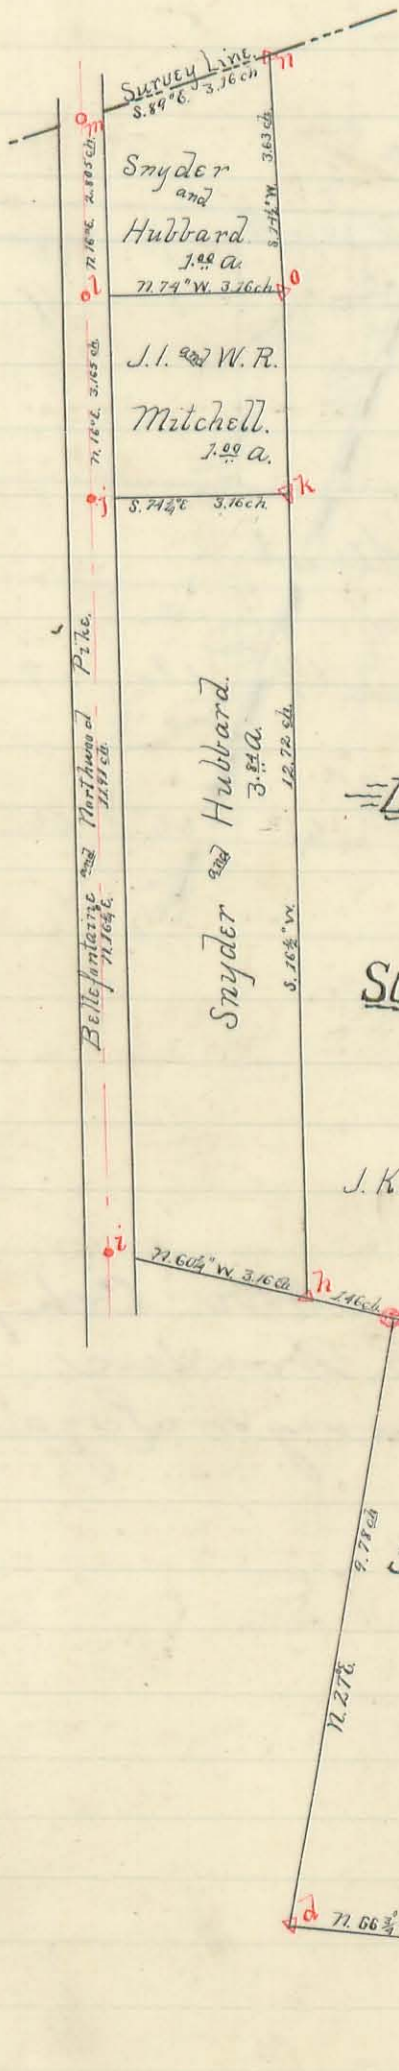 Survey Line
S. 89°E. 3.16 ch
n
m
N. 16°E. 2.805 ch.
Snyder
and
Hubbard
1.00 a.
3.63 ch.
N. 74°W. 3.16 ch
o
l
N. 16°E. 3.165 ch.
J. I. and W. R.
Mitchell.
1.00 a.
j
S. 74¼°E 3.16 ch.
k
Bellefontaine and Northwood Pike.
N. 16¼ E. 11.91 ch.
Snyder and Hubbard.
3.84 a.
S. 16½°W. 12.72 ch.
J. K
i
N. 60¼°W. 3.16 ch
h
1.46 ch.
9.78 ch
N. 27°E.
d
N. 66¾°